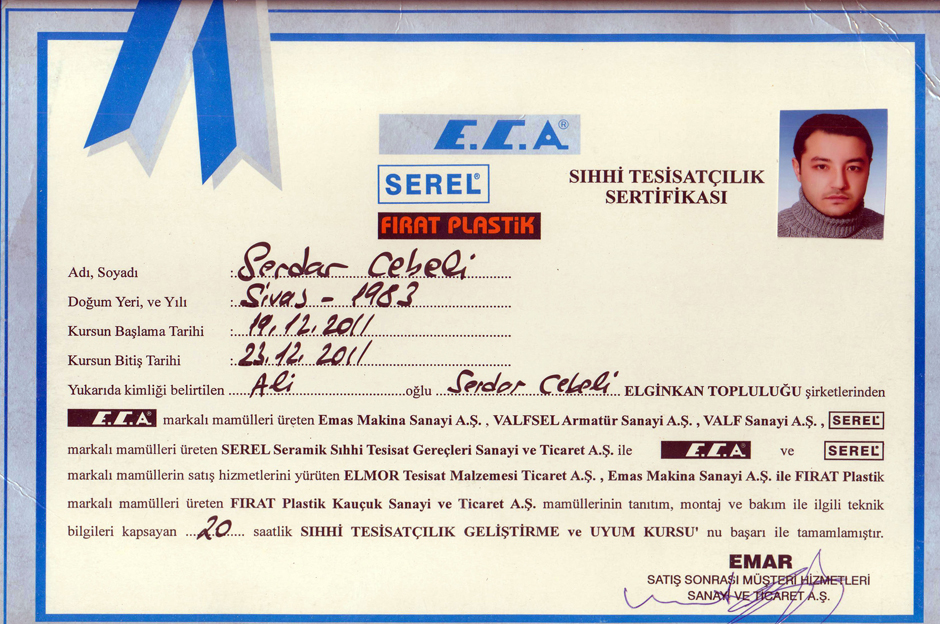 E.C.A®
SEREL®
FIRAT PLASTiK
SIHHİ TESİSATÇILIK
SERTİFİKASI
Adı, Soyadı : Serdar Cebeli
Doğum Yeri, ve Yılı : Sivas - 1983
Kursun Başlama Tarihi : 19.12.2011
Kursun Bitiş Tarihi : 23.12.2011
Yukarıda kimliği belirtilen Ali oğlu Serdar Cebeli ELGİNKAN TOPLULUĞU şirketlerinden
E.C.A® markalı mamülleri üreten Emas Makina Sanayi A.Ş. , VALFSEL Armatür Sanayi A.Ş. , VALF Sanayi A.Ş. , SEREL®
markalı mamülleri üreten SEREL Seramik Sıhhi Tesisat Gereçleri Sanayi ve Ticaret A.Ş. ile E.C.A® ve SEREL®
markalı mamüllerin satış hizmetlerini yürüten ELMOR Tesisat Malzemesi Ticaret A.Ş. , Emas Makina Sanayi A.Ş. ile FIRAT Plastik
markalı mamülleri üreten FIRAT Plastik Kauçuk Sanayi ve Ticaret A.Ş. mamüllerinin tanıtım, montaj ve bakım ile ilgili teknik
bilgileri kapsayan 20 saatlik SIHHİ TESİSATÇILIK GELİŞTİRME ve UYUM KURSU' nu başarı ile tamamlamıştır.
EMAR
SATIŞ SONRASI MÜŞTERİ HİZMETLERİ
SANAYİ VE TİCARET A.Ş.